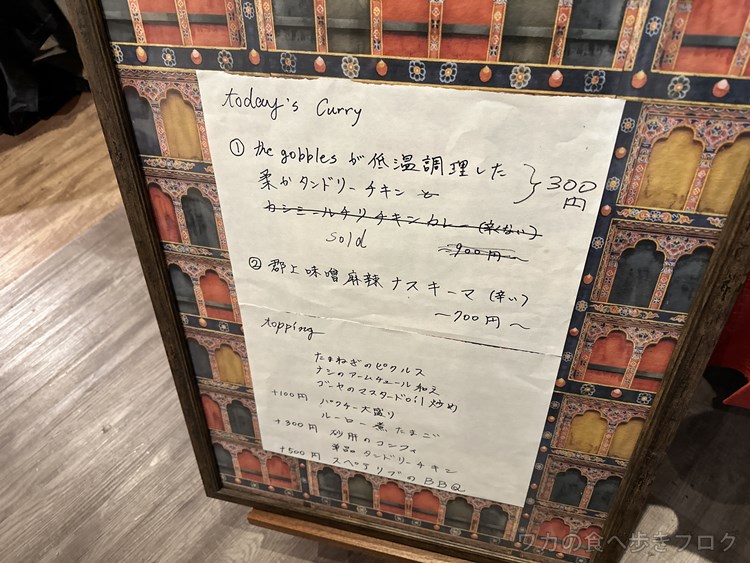 today's Curry
① the gobbles が低温調理した
柔かタンドリーチキンと
} 300円
カシミールチリチキンカレー (辛くない)
sold
900円〜
② 郡上味噌麻辣ナスキーマ (辛い)
〜700円〜
topping
たまねぎのピクルス
ナシのアームチュール和え
ゴーヤのマスタードoil炒め
+100円 パクチー大盛り
ルーロー煮たまご
+300円 砂肝のコンフィ
単品タンドリーチキン
+500円 スペアリブのBBQ
ワカの食べ歩きブログ